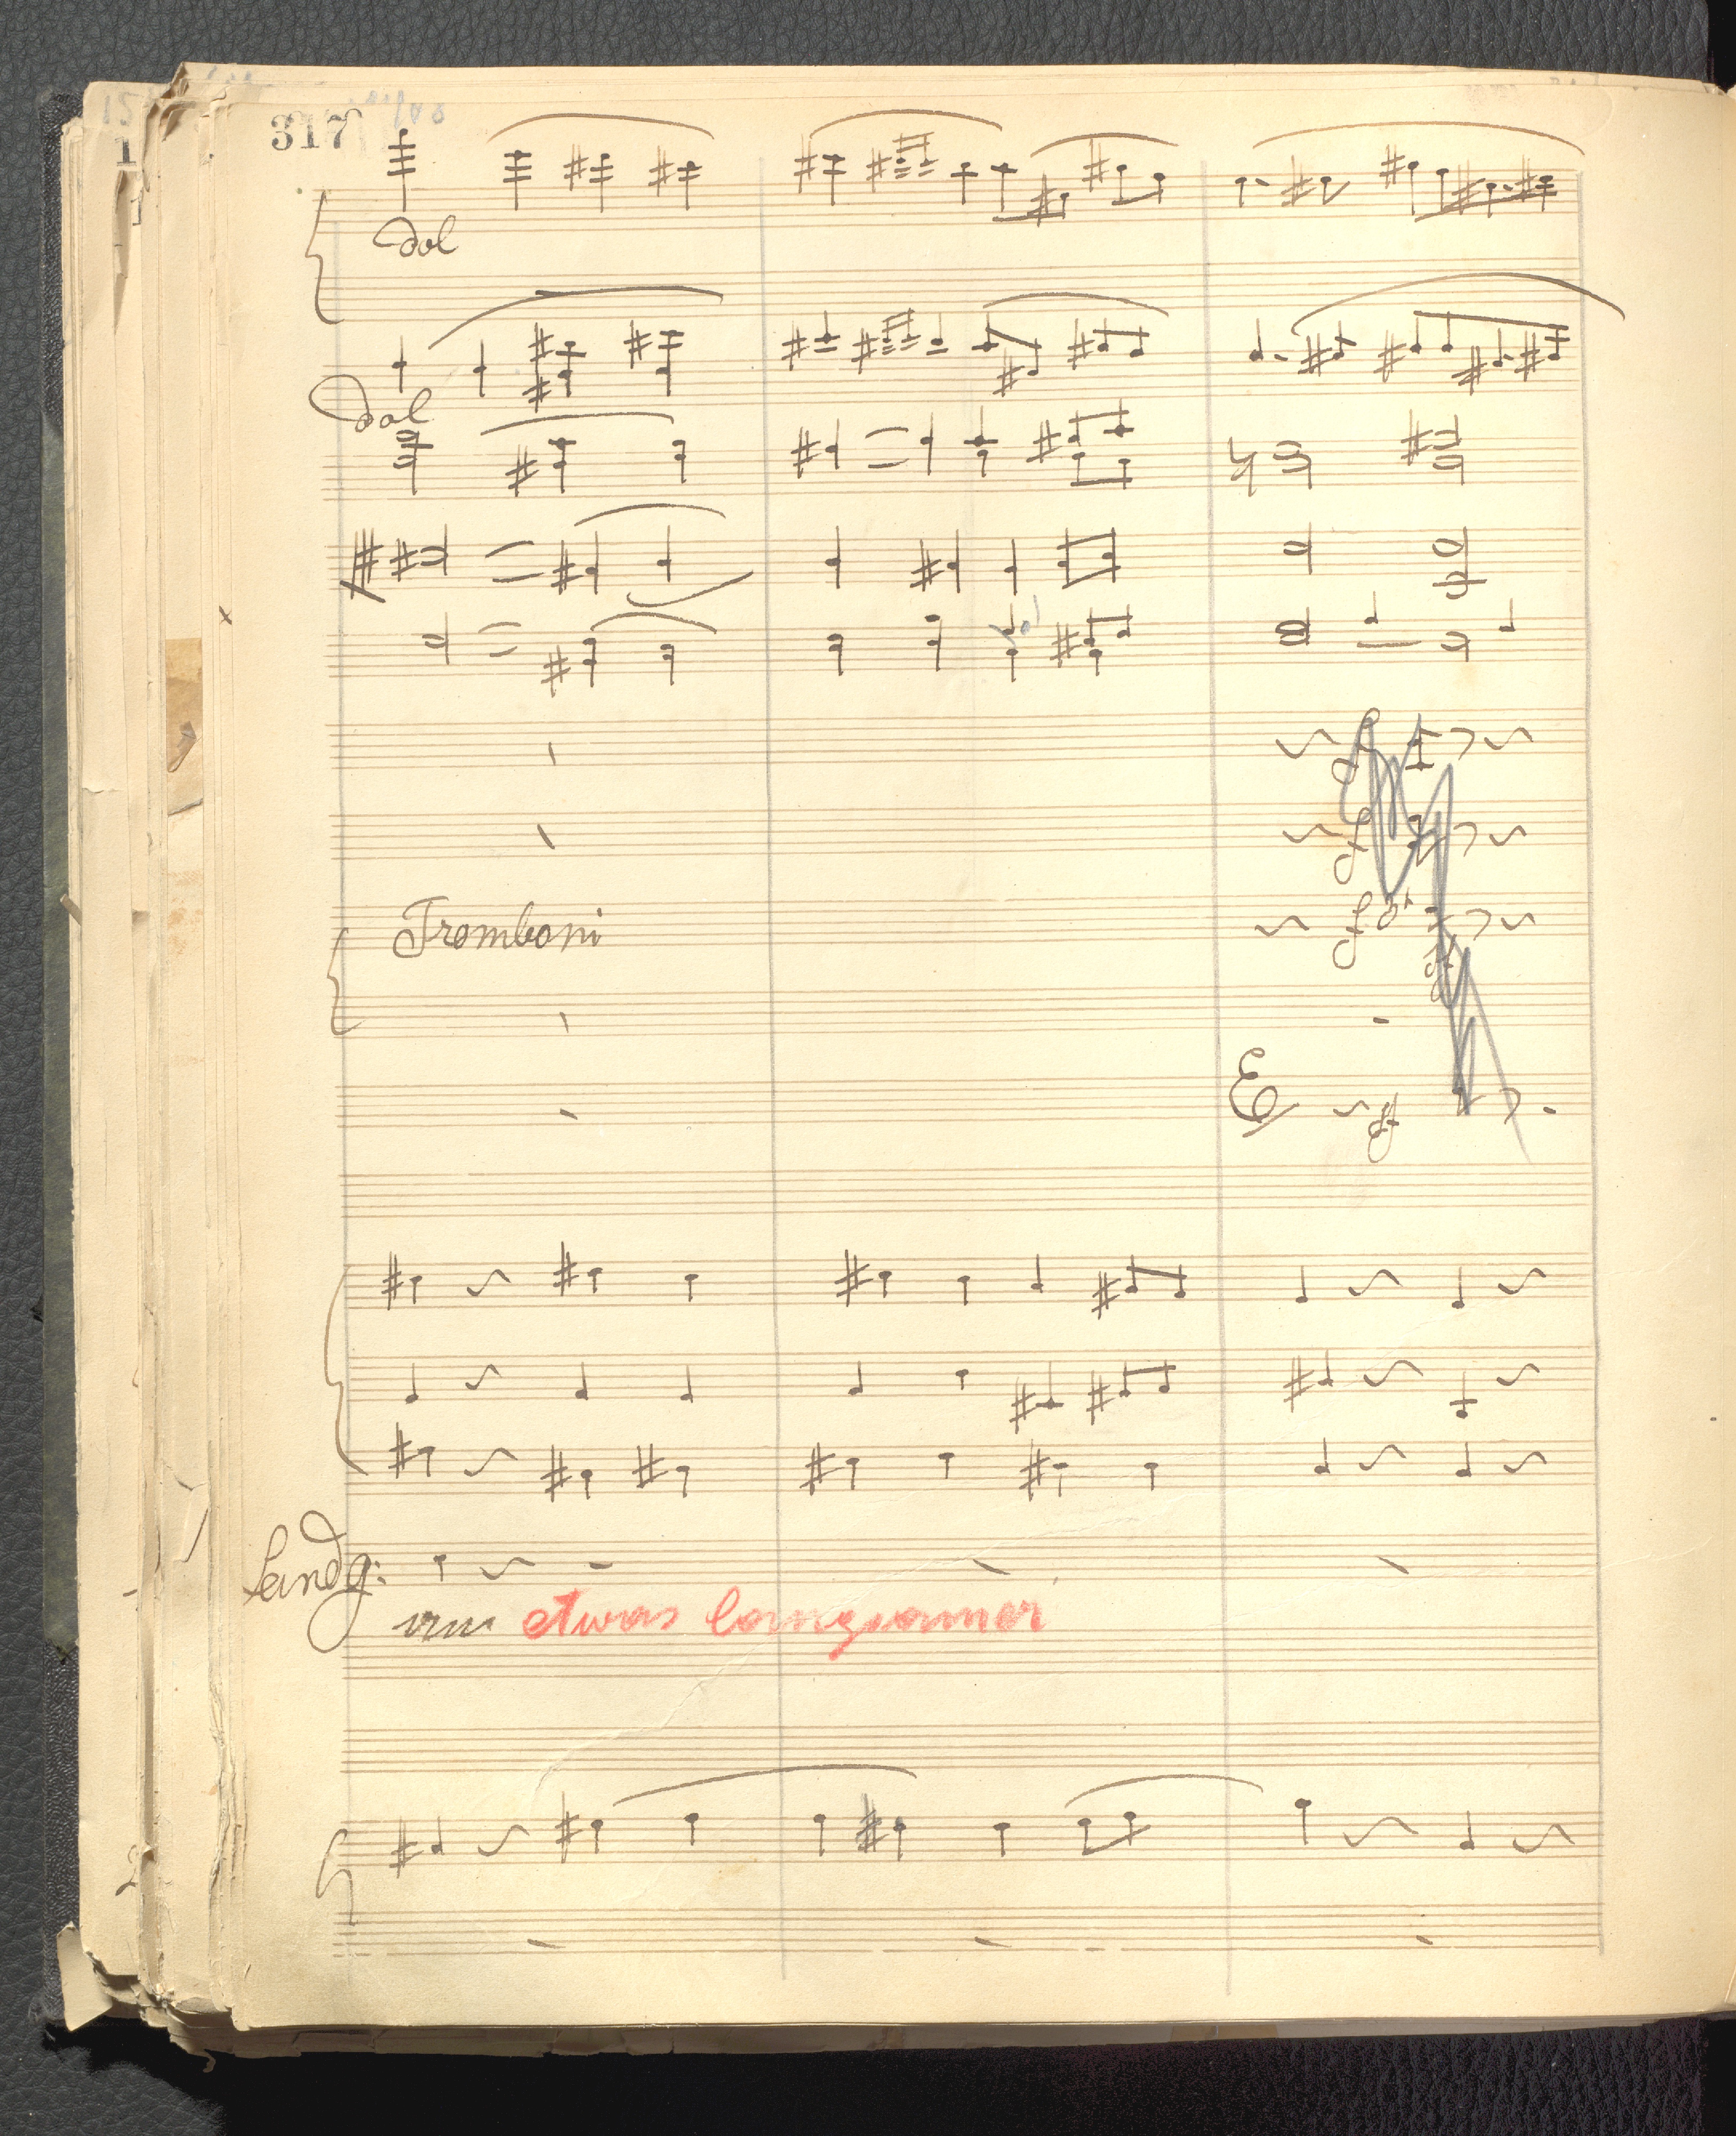 317
dol
dol
Tromboni
Landg:
etwas langsamer